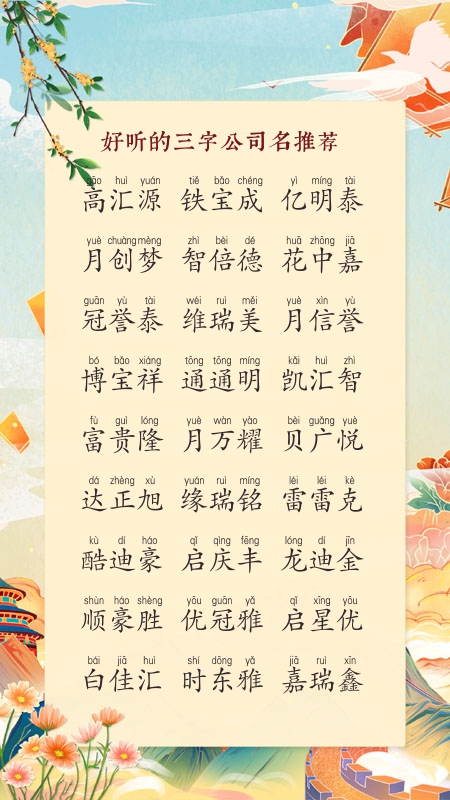 好听的三字公司名推荐
gāo huì yuán tiě bǎo chéng yì míng tài
高汇源 铁宝成 亿明泰
yuè chuàng mèng zhì bèi dé huā zhōng jiā
月创梦 智倍德 花中嘉
guān yù tài wéi ruì měi yuè xìn yù
冠誉泰 维瑞美 月信誉
bó bǎo xiáng tōng tōng míng kǎi huì zhì
博宝祥 通通明 凯汇智
fù guì lóng yuè wàn yào bèi guǎng yuè
富贵隆 月万耀 贝广悦
dá zhèng xù yuán ruì míng léi léi kè
达正旭 缘瑞铭 雷雷克
kù dí háo qǐ qìng fēng lóng dí jīn
酷迪豪 启庆丰 龙迪金
shùn háo shèng yōu guān yǎ qǐ xīng yōu
顺豪胜 优冠雅 启星优
bái jiā huì shí dōng yǎ jiā ruì xīn
白佳汇 时东雅 嘉瑞鑫